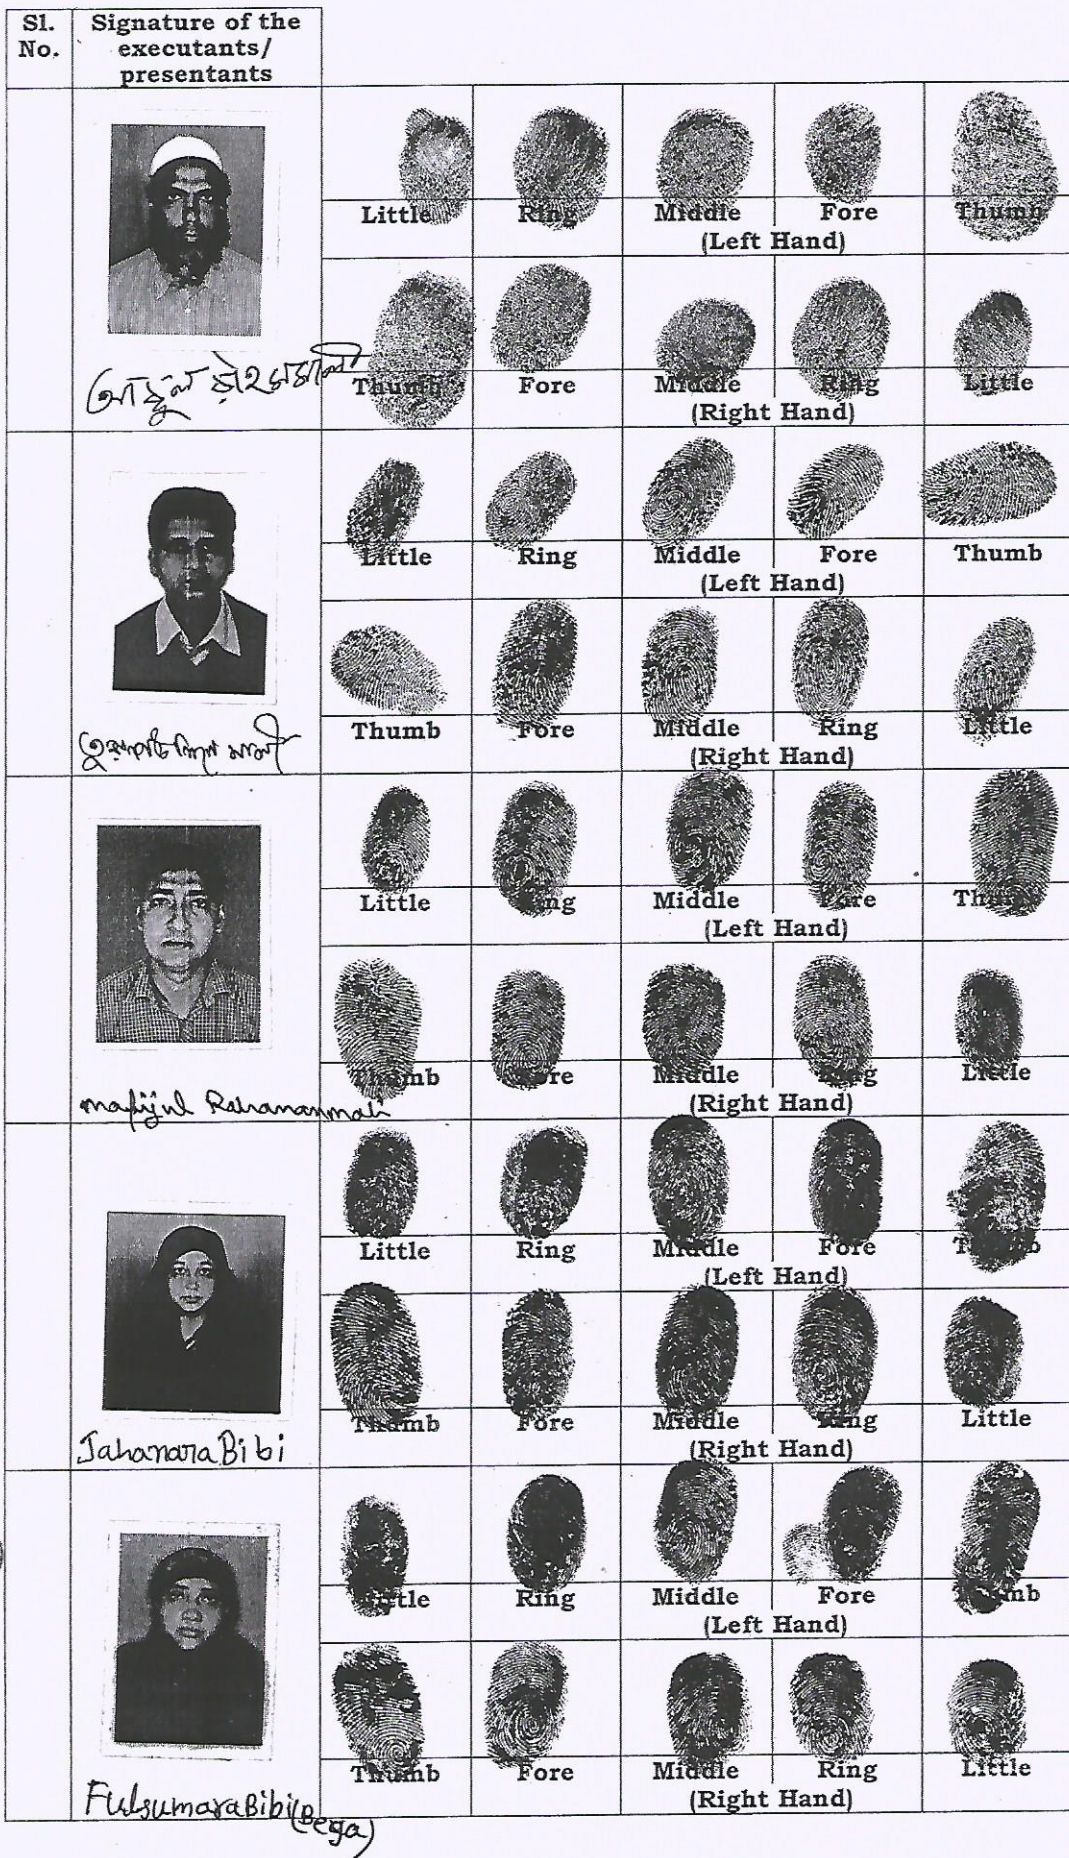 Sl. No.
Signature of the executants/ presentants
Little Ring Middle Fore Thumb
(Left Hand)
Thumb Fore Middle Ring Little
(Right Hand)
Little Ring Middle Fore Thumb
(Left Hand)
Thumb Fore Middle Ring Little
(Right Hand)
Little Ring Middle Fore Thumb
(Left Hand)
Thumb Fore Middle Ring Little
(Right Hand)
mafijul Rahaman mali
Little Ring Middle Fore Thumb
(Left Hand)
Thumb Fore Middle Ring Little
(Right Hand)
Jahanara Bibi
Little Ring Middle Fore Thumb
(Left Hand)
Thumb Fore Middle Ring Little
(Right Hand)
Fulsumara Bibi